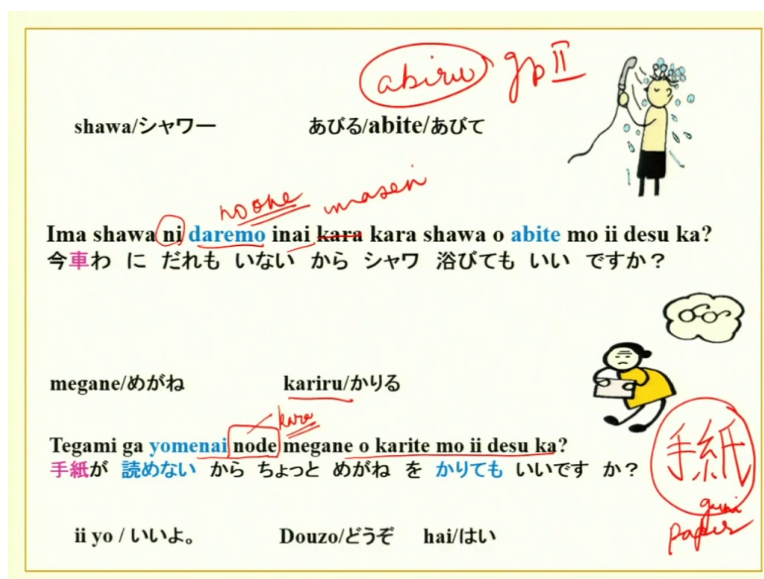 abiru gp II
shawa/シャワー あびる/abite/あびて
no one imasen
Ima shawa ni daremo inai kara kara shawa o abite mo ii desu ka?
今車わ に だれも いない から シャワ 浴びても いい ですか？
megane/めがね kariru/かりる
kara
Tegami ga yomenai node megane o karite mo ii desu ka?
手紙が 読めない から ちょっと めがね を かりても いいです か？
手紙
gami
paper
ii yo / いいよ。 Douzo/どうぞ hai/はい